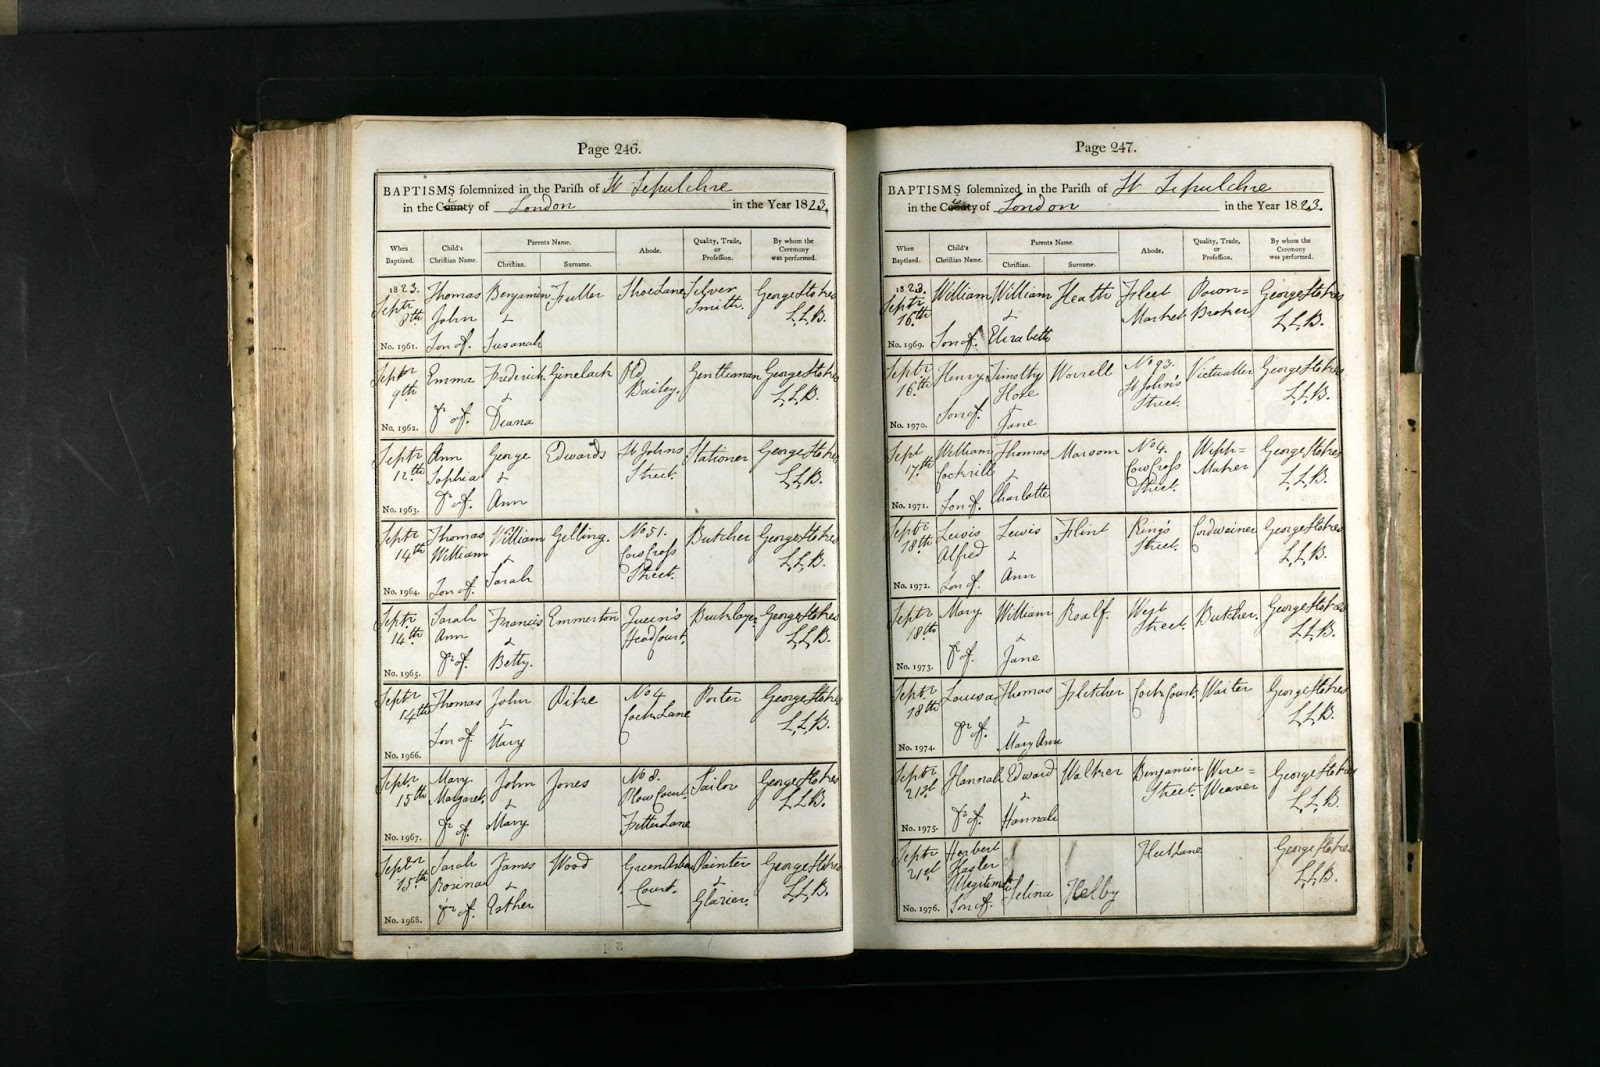 Page 246.
BAPTISMS solemnized in the Parish of St Sepulchre
in the County of London in the Year 1823.
When Baptized. Child's Christian Name. Parents Name. Christian. Surname. Abode. Quality, Trade, or Profession. By whom the Ceremony was performed.
1823. Septr 8th No. 1961. Thomas John Son of Benjamin & Susanah Fuller Shoe Lane Silver Smith George Stokes L.L.B.
Septr 9th No. 1962. Emma Dr of Frederick & Diana Old Bailey. Gentleman George Stokes L.L.B.
Septr 12th No. 1963. Ann Sophia Dr of George & Ann Edwards St Johns Street. Stationer George Stokes L.L.B.
Septr 14th No. 1964. Thomas William Son of William & Sarah Gelling. No 51. Cow Cross Street. Butcher George Stokes L.L.B.
Septr 14th No. 1965. Sarah Ann Dr of Francis & Betty. Emmerton Queen's Head Court. Bricklayer George Stokes L.L.B.
Septr 14th No. 1966. Thomas Son of John & Mary Pike No 4 Cock Lane Porter George Stokes L.L.B.
Septr 15th No. 1967. Mary Margaret Dr of John & Mary Jones No 8. Plow Court. Fetter Lane Tailor George Stokes L.L.B.
Septr 15th No. 1968. Sarah Rosina Dr of James & Esther Wood Green Arbor Court. Painter & Glazier. George Stokes L.L.B.
Page 247.
BAPTISMS solemnized in the Parish of St Sepulchre
in the County of London in the Year 1823.
When Baptized. Child's Christian Name. Parents Name. Christian. Surname. Abode. Quality, Trade, or Profession. By whom the Ceremony was performed.
1823. Septr 16th No. 1969. William Son of William & Elizabeth Heath Fleet Market Pawn= Broker George Stokes L.L.B.
Septr 16th No. 1970. Henry Son of Timothy & Jane Worrell No 93. St John's Street. Victualler George Stokes L.L.B.
Sept 17th No. 1971. William Cockrill Son of Thomas & Charlotte Marsom No 4. Cow Cross Street. Whip= Maker George Stokes L.L.B.
Septr 18th No. 1972. Lewis Alfred Son of Lewis & Ann Flint King's Street. Cordwainer George Stokes L.L.B.
Septr 18th No. 1973. Mary Dr of William & Jane Roalf. West Street. Butcher. George Stokes L.L.B.
Septr 18th No. 1974. Louisa Dr of Thomas & Mary Ann Fletcher Cock Court. Waiter George Stokes L.L.B.
Septr 21st No. 1975. Hannah Dr of Edward & Hannah Walker Benjamin Street. Wire= Weaver George Stokes L.L.B.
Septr 21st No. 1976. Herbert Illegitimate Son of Selina Helby Fleet Lane George Stokes L.L.B.